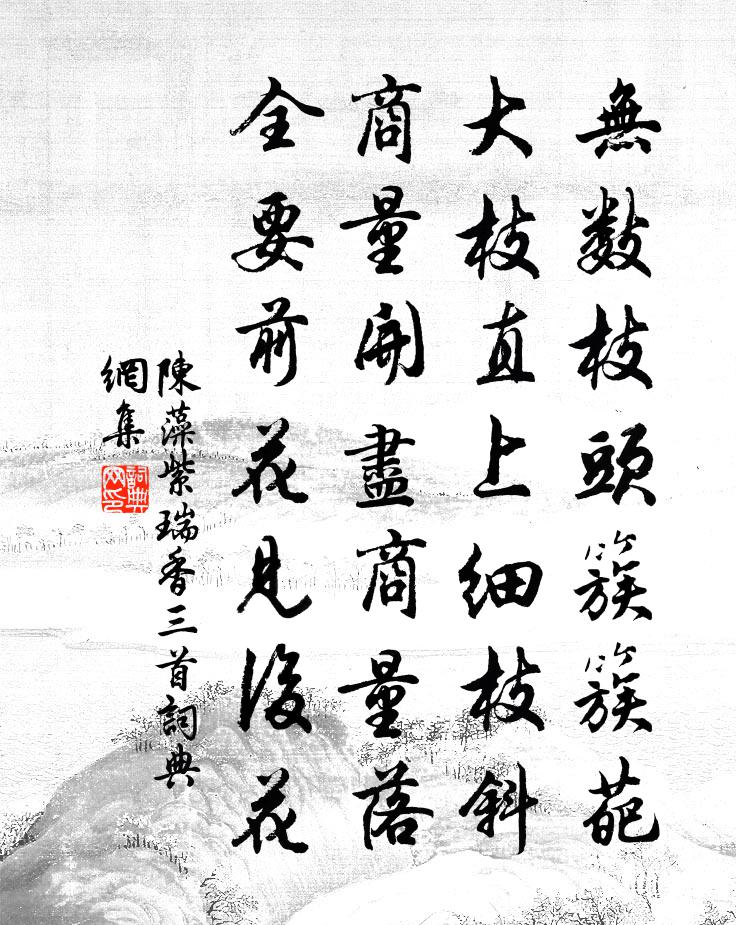 無數枝頭簇簇葩
大枝直上細枝斜
商量開盡商量落
全要前花見後花
陳藻紫瑞香三首詞典
網集
詞典
网印